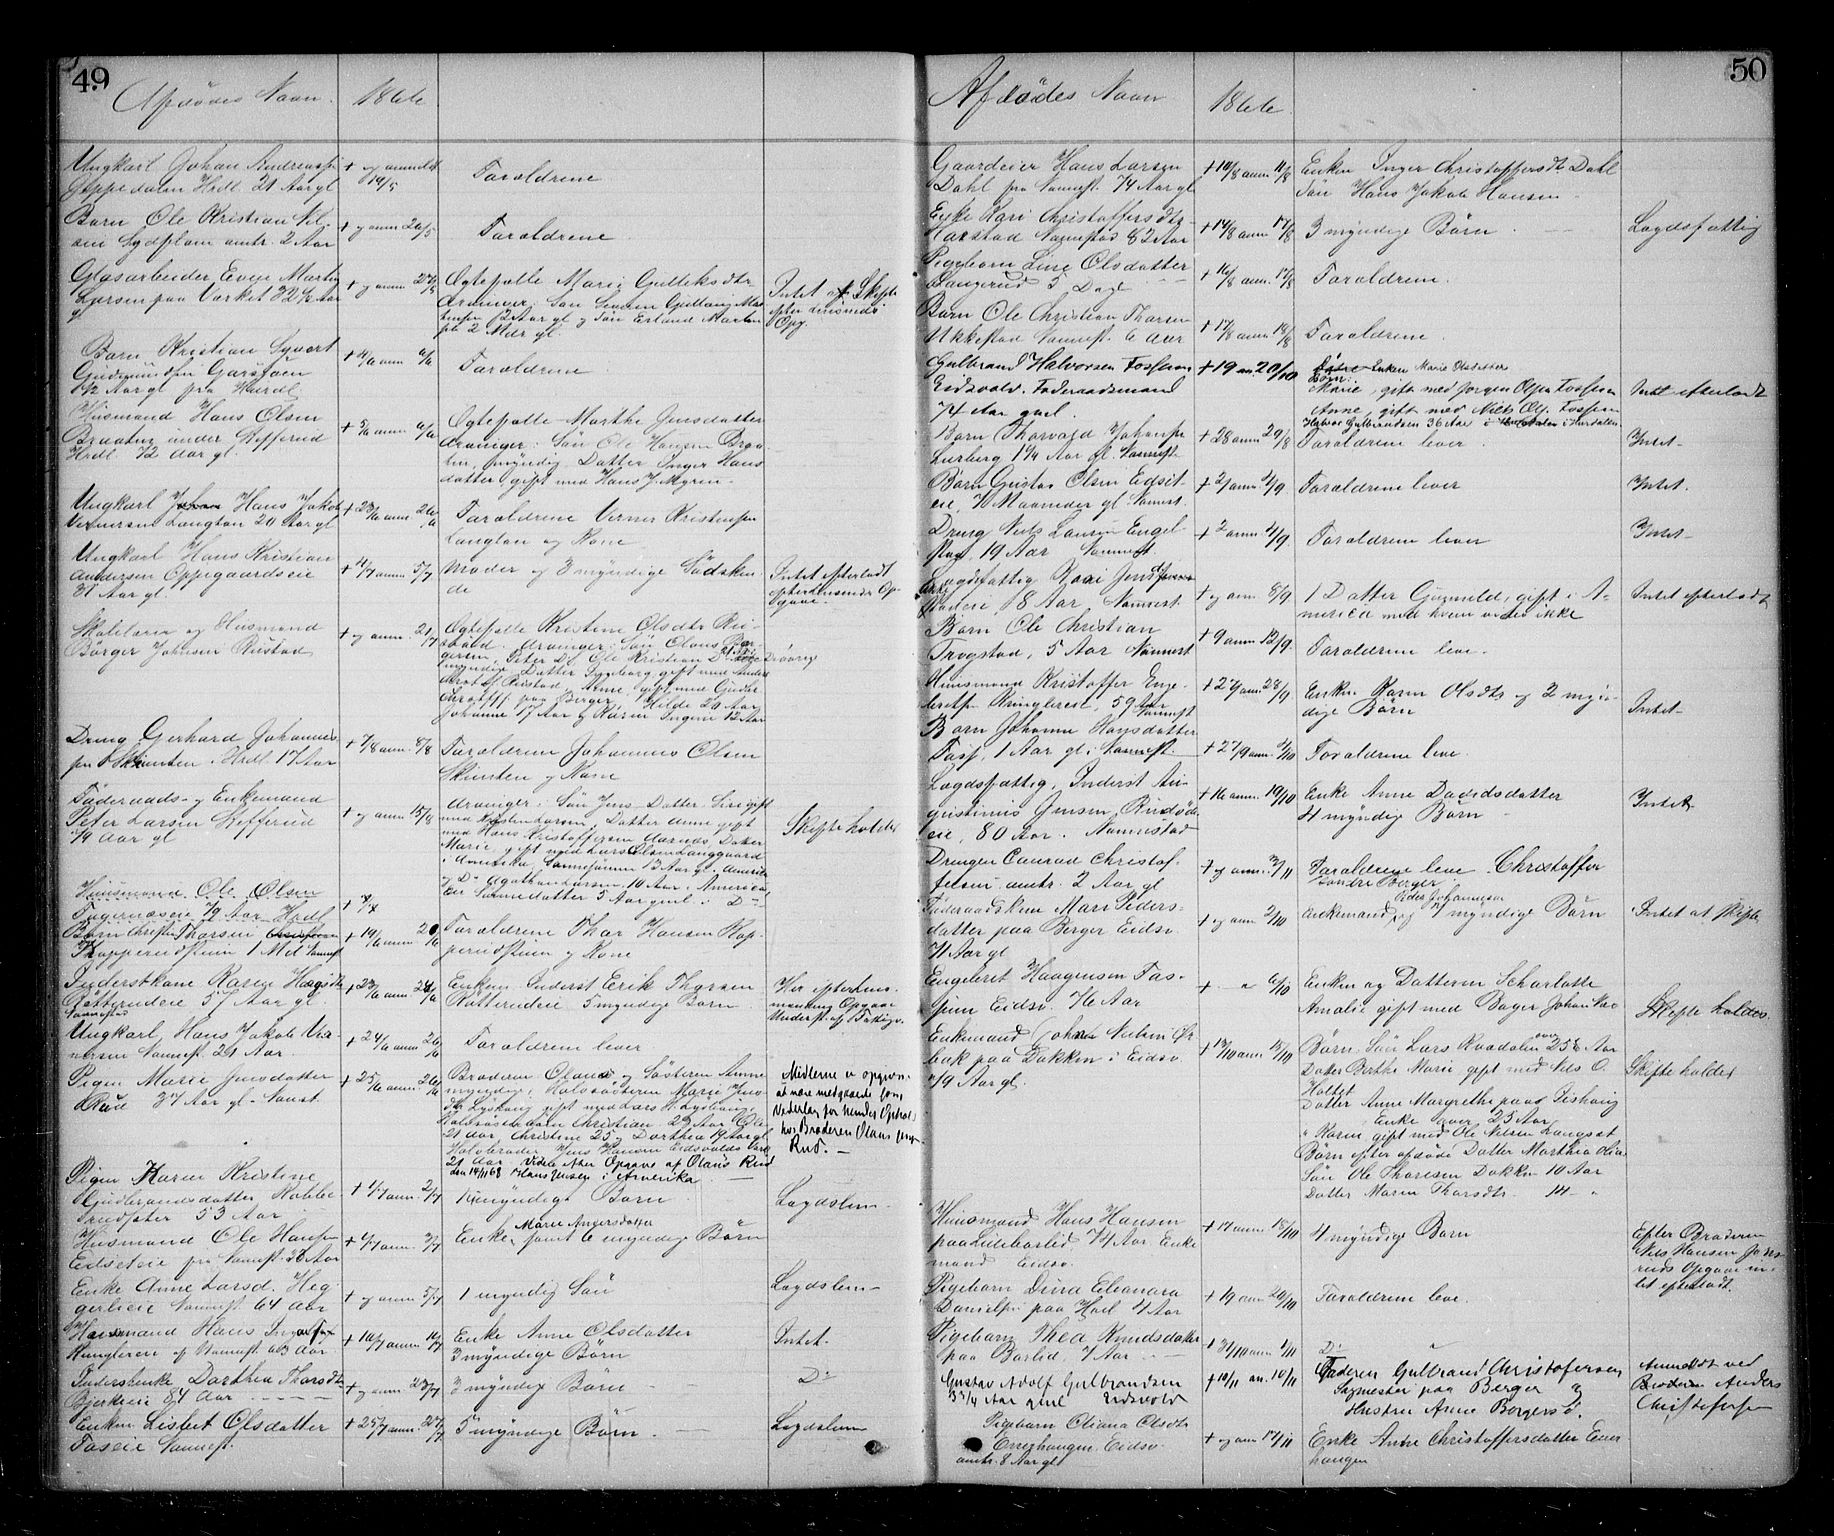 49
Afdødes Navn. 1866
Ungkarl Johan Andreasen
Gjøppedalen Hrdl. 21 Aar gl
+ og anmeldt 19/5
Foroldrene
Barn Ole Kristian Nil-
seie Sydplam omtr. 2 Aar
+ og anm 26/5
Foroldrene
Glasarbeider Even Martin
Larsen paa Værket 32 1/2 Aar
gl
+ og anm 27/5
Ogtefolle Marie Gulleksdtr
Arvinger: Søn Lauren Gullang Mar-
tinsen 12 Aar gl og Søn Erland Martin
pa 2 Mdr gl.
Intet at Skifte
efter Lensmds
Opg.
Barn Kristian Syvert
Gudmundsen Garsjøen
1/2 Aar gl fra Hurdl
+ 4/6 anm 6/6
Foroldrene
Husmand Hans Olsen
Braaten under Skefferud
Hrdl 72 aar gl.
+ 5/6 anm 6/6
Ogtefolle Marthe Jensdatter
Arvinger: Søn Ole Hansen Braa-
ten, myndig, Datter Inger Hans
datter gift med Hans J. Myren
Ungkarl Johan Hans Jakob
Vernersen Langton 20 Aar gl
+ 23/6 anm 26/6
Foroldrene Verner Kristensen
Langton og Kone
Ungkarl Hans Kristian
Andersen Oppegaardseie
31 Aar gl.
+ 4/7 anm 5/7
Moder og 3 myndige Sødsken-
de
Intet efterladt
efter Lensmds Op-
gave.
Skolelærer og Husmand
Børger Johnsen Rustad
+ og anm 21/7
Ogtefolle Kristine Olsdtr Ru-
stad. Arvinger: Søn Olaus Bør-
gersen, Peter Do, Ole Kristian Do
myndige, Datter Ingeborg gift med Anders
Rustad, Anne gift med Gudbr.
Christoff paa Berger, Hilde 20 Aar
Johanne 17 Aar og Karen Ingine 12 Aar
Dreng Gerhard Johannes-
sen Skrinsten. Hrdl 17 Aar
+ 7/8 anm. 8/8
Foroldrene Johannes Olsen
Skrinsten og Kone
Føderaads- og Enkemand
Peter Larsen Skefferud
Aar gl
+ og anm 15/8
Arvinger: Søn Jens, Datter Siri gift
med Kristen Larsen, Datter Anne gift
med Hans Kristoffersen Aarnæs, Datter
Marie gift med Lars Olsen Langgaard
i Amerika, Sønnesønnen 13 Aar gl. America
og Do Agathon Larsen 10 Aar i America
En Sønnedatter 5 Aar gml. i Do
Skifte holdes
Husmand Ole Olsen
Fagernæseie 79 Aar Hrdl
Barn Christian Thorsen
Kopperudstuen 1 Md Nannest
+ 19/6 anm 20/6
Foroldrene Thor Hansen Kop-
perudstuen og Kone
Inderstkone Karen Hagsdtr
Røtterudeie 57 Aar gl.
Nannestad
+ 23/6 anm 24/6
Enkem. Inderst Erik Thorsen
Røtterudeie 5 myndige Børn
Her efter Lens-
mandens Opgave
Underst. af Fattigv.
Ungkarl Hans Jakob Ver-
nersen Nannest. 21 Aar.
+ 24/6 anm 26/6
Foroldrene lever
Pigen Marie Jensdatter
Rud 37 Aar gl. Nanst.
+ 25/6 anm. 26/6
Broderen Olaus og Søsteren Anne
myndige, Halvsøsteren Marie Jens
dtr Lyshaug gift med Lars H. Lyshaug
Halvsøskende Christian 29 Aar Ole
21 aar, Christine 25 og Dorthea 19 Aar gl
Halvbroder Jens Hansen Eidsvolds Værk
21 Aar. Videre efter Opgave af Olaus Rud
den 14/11 68 Hans Jensen i Amerika
Midlerne er opgivn.
at være medgaaede som
Vederlag for hendes Ophold
hos Broderen Olaus Jensen
Rud.
Pigen Karen Kristine
Gudbrandsdatter, Kobbe-
rudsæter 53 Aar
+ 1/7 anm. 2/7
1 myndigt Barn.
Lægdslem
Husmand Ole Hansen
Eidseteie fra Nannest. 38 Aar
+ 6/7 anm. 7/7
Enke, Marie Andersdatter samt 6 myndige Børn
Enke Anne Larsd. Heg-
gerlieie Nannest 64 aar
+ og anm 5/7
1 myndig Søn
Lægdslem
Husmand Hans Ingvalds
Ringlereie af Nannest 63 Aar
+ 10/7 anm 11/7
Enke Anne Olsdatter
3 myndige Børn
Intet
Inderstenke Dorthea Thorsdtr
Bjerkeeie 84 Aar
+ og anm 23/7
3 myndige Børn
Do
Enken Lisbet Olsdatter
Foseie Nannest.
+ 25/7 anm. 27/7
5 myndige Børn.
Lægdslem
50
Afdødes Navn 1866
Gaardeier Hans Larsen
Dahl fra Nannest. 74 Aar gl
+ 10/8 anm 11/8
Enken Inger Christoffersdtr Dahl
Søn Hans Jakob Hansen
Enke Kari Christoffersdtr
Harstad Nannestad 82 Aar
+ 14/8 anm 17/8
3 myndige Børn.
Lægdsfattig
Pigebarn Line Olsdatter
Haugerud 5 Dage
+ 16/8 anm 17/8
Foroldrene.
Barn Ole Christian Thorsen
Ukkestad Nannest. 6 Aar
+ 17/8 anm 18/8
Foroldrene.
Gulbrand Halvorsen Fossum
Eidsvold. Føderaadsmand
74 Aar gml.
+ 19 an. 20/10
Enken Marie Olsdatter
Børn:
Marie, gift med Jørgen Olsen Fossum
Anne, gift med Niels Ols. Fossum
Halvor Gulbrandsen 36 Aar i Hurdalen
Intet efterladt
Barn Thorvald Johansen
Lusberg 1 1/4 Aar gl. Nannest
+ 28 anm 29/8
Foroldrene lever.
Intet
Barn Gustav Olsen Eidset-
eie, 7 Maaneder gl Nannest.
+ 2/ anm 3/9
Foroldrene lever
Intet.
Dreng Niels Larsen Engel-
stad 19 Aar Nannest.
+ 2 anm 4/9.
Foroldrene lever
Intet
Lægdsfattig Kari Jensdatter
eie, 78 Aar, Nannest.
+ og anm. 8/9
1 Datter Gunnild, gift i A-
merica med hvem vides ikke
Intet efterladt
Barn Ole Christian
Trogstad, 5 Aar Nannest
+ 9 anm 12/9.
Foroldrene leve.
Huusmand Kristoffer Enge-
bretsen Ringlereie, 59 Aar Nannest
+ 27 anm. 28/9
Enken Karen Olsdtr og 2 myn-
dige Børn
Intet
Barn Johanne Hansdatter
Foss, 1 Aar gl. Nannest.
+ 27/9 anm 2/10
Foroldrene leve.
Lægdsfattig Inderst Au-
gustinus Jensen Rudsøde-
eie, 80 Aar. Nannestad
+ 16 anm. 19/10
Enke Anne Davidsdatter
4 myndige Børn
Intet
Drengen Conrad Christof-
fersen omtr. 2 Aar gl
+ og anm. 3/11
Foroldrene leve. Christoffer
søndre Berger.
Føderaadskone Mari Peders-
datter paa Berger Eidsv.
71 Aar gl
+ og anm 2/10
Enkemand Peder Johannesen og 7 myndige Børn
Intet at skifte
Engebret Haagensen Fos-
sum Eidsv. 76 Aar
+ " 6/10
Enken og Datteren Scharlotte
Amalie gift med Bager Johan Nic
Skifte holdes.
Enkemand Johan Nielsen Ør-
bæk paa Dokken i Eidsv.
79 Aar gl.
+ 13/10 anm. 15/10
Børn: Søn Lars Raadalen over 25 Aar
Datter Berthe Marie gift med Nils O.
Holtet
Datter Anne Margrethe paa Fiskvig
Enke over 25 Aar
" Karen gift med Ole Nilsen Langset
Børn efter afdøde Datter Marthea Olia
Søn Ole Thoresen Dokken 10 Aar
Datter Maren Thorsdtr. 14 "
Skifte holdes
Huusmand Hans Hansen
paa Lillebarlid 74 Aar Enke
mand Eidsv.
+ 17 anm. 18/10
4 myndige Børn
Efter Broderen
Nils Hansen
ruds Opgave in-
tet efterladt.
Pigebarn Dina Eleonora
Danielsen paa Hoel 4 Aar
+ 19 anm 20/10
Foroldrene leve.
Pigebarn Thea Knudsdatter
paa Barlid 7 Aar
+ 31/10 anm. 1/11
Do "
Gustav Adolf Gulbrandsen
3 3/4 Aar gml Eidsvold
+ 10/11 an. 10/11
Faderen Gulbrand Christofersen
Sagmester paa Berger og
Hustru Anne Børgersd.
Anmeldt ved
Broderen Anders
Christofersen
Pigebarn Oliana Olsdtr
Ennerhaugen Eidsv.
omtr. 8 Aar gl
+ og anm 17/11
Enke Anne Christoffersdatter Ener-
haugen